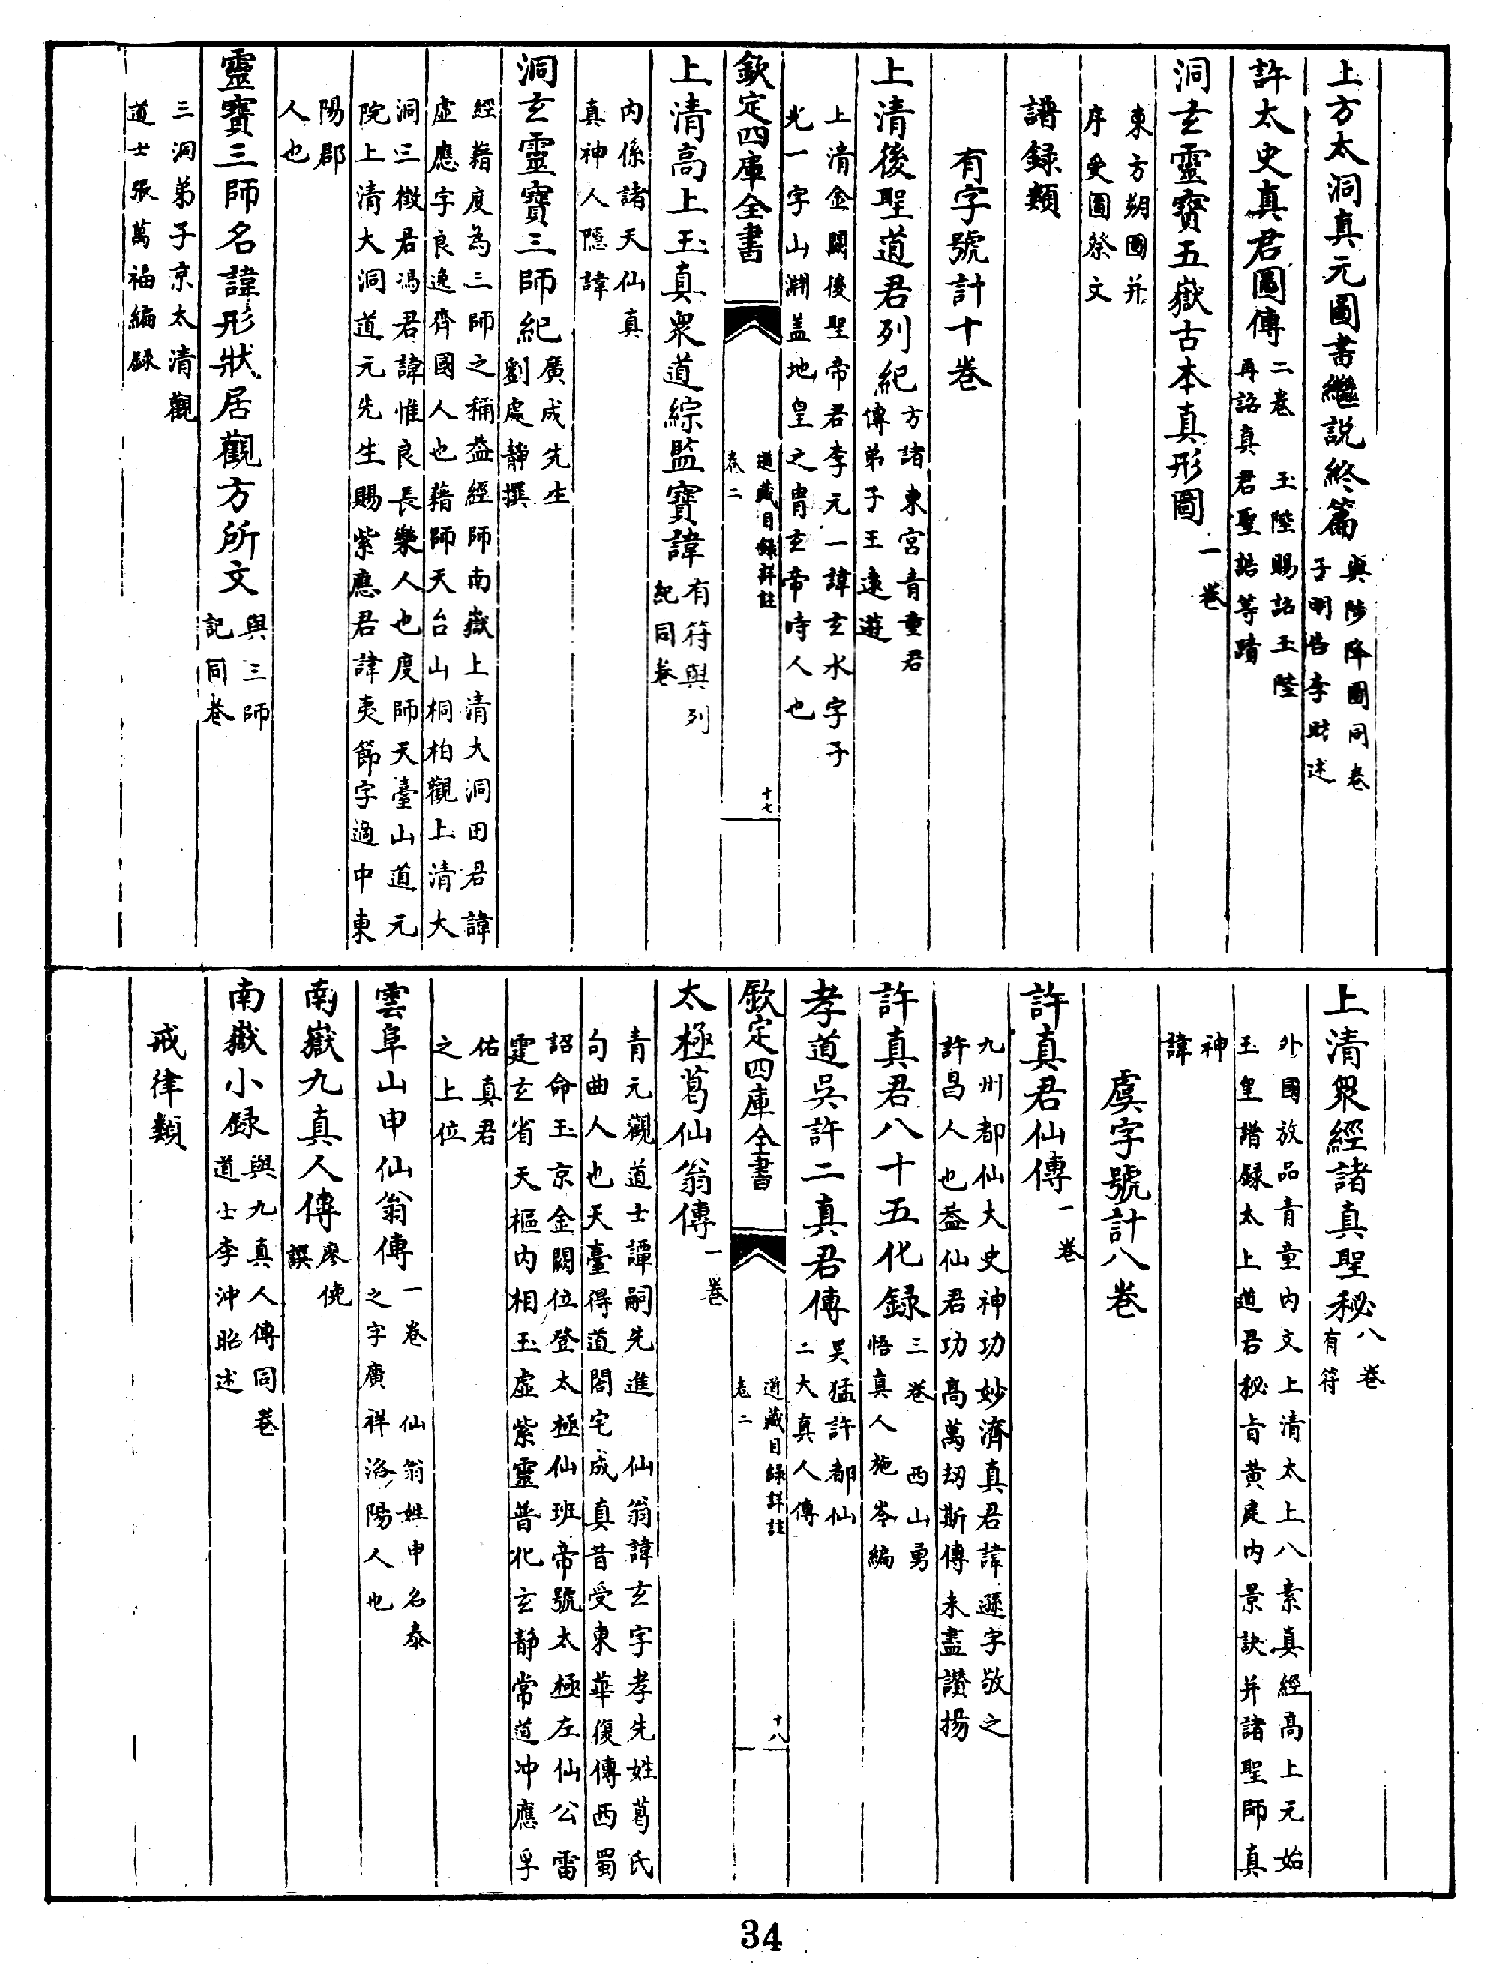 上方太洞真元圖書繼説終篇與陟降圖同卷
子明告李財述
許太史真君圖傳二卷 玉陛賜詔玉陛
再詔真君聖誥等蹟
洞玄靈寶五嶽古本真形圖一卷
東方朔圖并
序受圖祭文
譜録類
有字號計十卷
上清後聖道君列紀方諸東宮青童君
傳弟子王遠遊
上清金闕後聖帝君李元一諱玄水字子
光一字山淵盖地皇之胄玄帝時人也
欽定四庫全書
道藏目録詳註
卷二
十七
上清高上玉真衆道綜監寶諱有符與列
紀同卷
内係諸天仙真
真神人隱諱
洞玄靈寶三師紀廣成先生
劉處靜撰
經籍度為三師之稱益經師南嶽上清大洞田君諱
虛應字良逸齊國人也藉師天台山桐柏觀上清大
洞三徵君馮君諱惟良長樂人也度師天臺山道元
院上清大洞道元先生賜紫應君諱夷節字適中東
陽郡
人也
靈寶三師名諱形狀居觀方所文與三師
記同卷
三洞弟子京太清觀
道士張萬福編録
上清衆經諸真聖秘八卷
有符
外國放品青童内文上清太上八素真經高上元始
玉皇譜録太上道君秘旨黄庭内景訣并諸聖師真
神
諱
虞字號計八卷
許真君仙傳一卷
九州都仙大史神功妙濟真君諱遜字敬之
許昌人也益仙君功高萬刼斯傳未盡讚揚
許真君八十五化録三卷 西山勇
悟真人施岑編
孝道吳許二真君傳吴猛許都仙
二大真人傳
欽定四庫全書
道藏目録詳註
卷二
十八
太極葛仙翁傳一卷
青元觀道士譚嗣先進 仙翁諱玄字孝先姓葛氏
句曲人也天臺得道閤宅成真昔受東華復傳西蜀
詔命玉京金闕位登太極仙班帝號太極左仙公雷
霆玄省天樞内相玉虛紫靈普化玄靜常道冲應孚
佑真君
之上位
雲阜山申仙翁傳一卷 仙翁姓申名泰
之字廣祥洛陽人也
南嶽九真人傳廖侁
譔
南嶽小録與九真人傳同卷
道士李沖昭述
戒律類
34